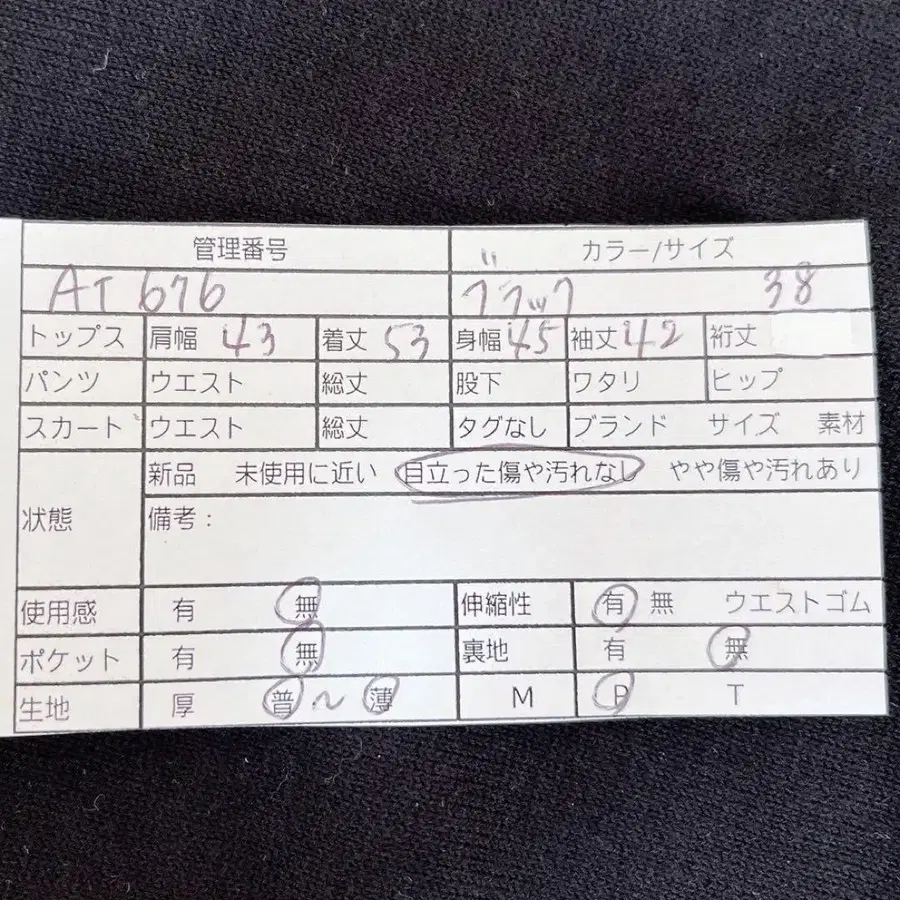 管理番号 カラー/サイズ
AT 676 ブラック 38
トップス 肩幅 43 着丈 53 身幅 45 袖丈 42 裄丈
パンツ ウエスト 総丈 股下 ワタリ ヒップ
スカート ウエスト 総丈 タグなし ブランド サイズ 素材
状態 新品 未使用に近い 目立った傷や汚れなし やや傷や汚れあり
備考：
使用感 有 無 伸縮性 有 無 ウエストゴム
ポケット 有 無 裏地 有 無
生地 厚 普 ~ 薄 M P T